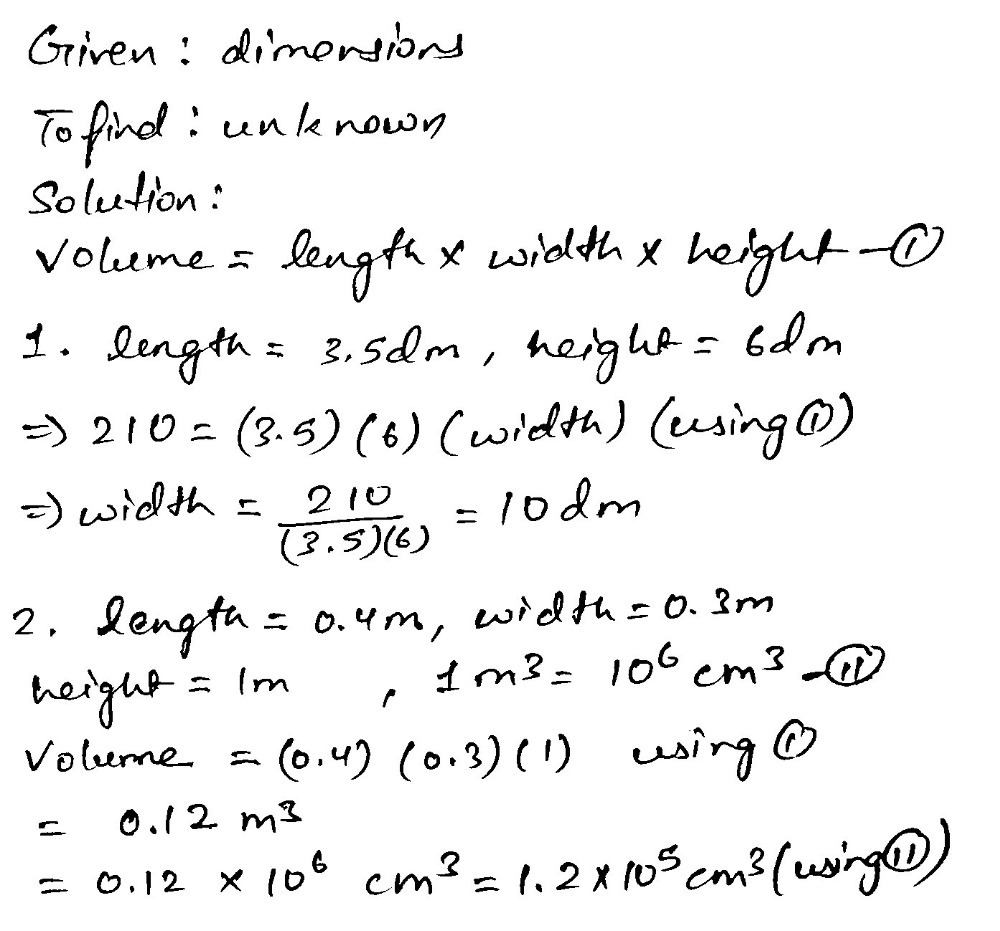 Given : dimensions
To find : unknown
Solution :
Volume = length x width x height -①
1. length = 3.5dm, height = 6dm
=> 210 = (3.5)(6)(width) (using ①)
=> width = 210/(3.5)(6) = 10dm
2. length = 0.4m, width = 0.3m
height = 1m , 1m3 = 10⁶ cm³ -⑪
Volume = (0.4) (0.3) (1) using ①
= 0.12 m³
= 0.12 x 10⁶ cm³ = 1.2 x 10⁵ cm³ (using ⑪)